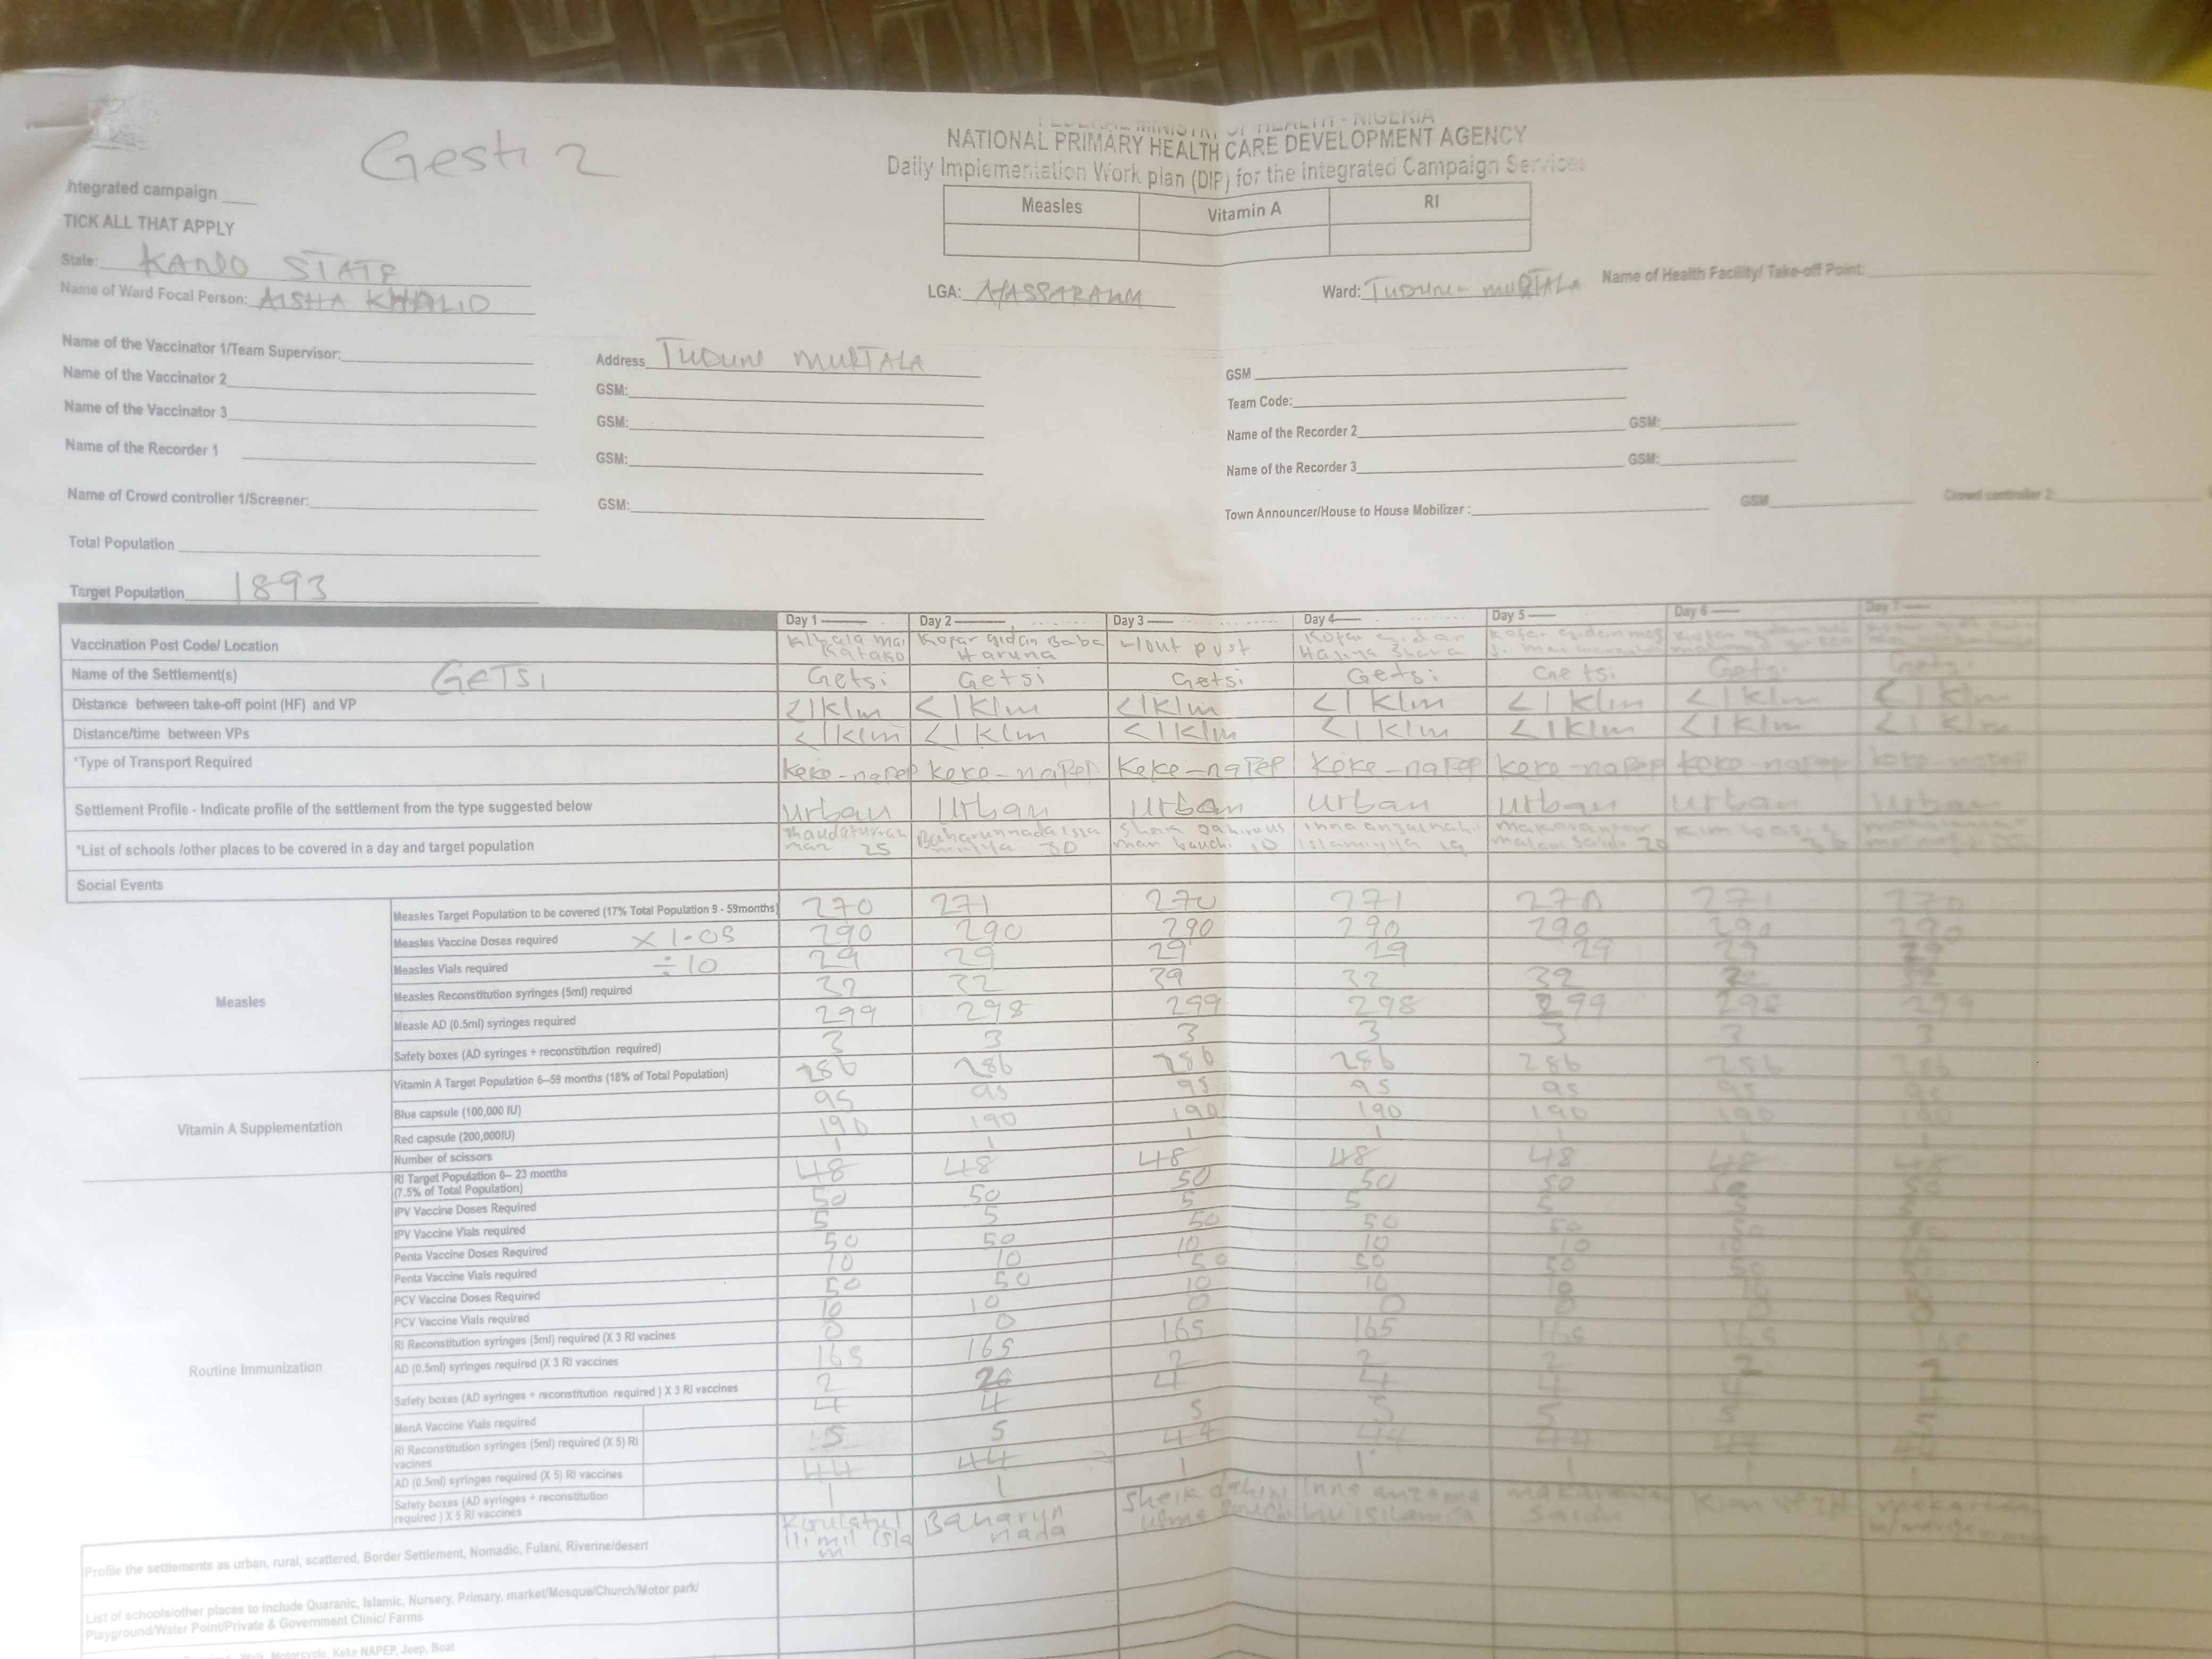 Gesti 2
FEDERAL MINISTRY OF HEALTH - NIGERIA
NATIONAL PRIMARY HEALTH CARE DEVELOPMENT AGENCY
Daily Implementation Work plan (DIP) for the Integrated Campaign Services
Measles Vitamin A RI
ntegrated campaign
TICK ALL THAT APPLY
State: KANO STATE
Name of Ward Focal Person: AISHA KHALID
LGA: NASSARAWA
Ward: TUDUN MURTALA
Name of Health Facility/ Take-off Point:
Name of the Vaccinator 1/Team Supervisor: Address TUDUN MURTALA GSM
Name of the Vaccinator 2 GSM: Team Code:
Name of the Vaccinator 3 GSM: Name of the Recorder 2 GSM:
Name of the Recorder 1 GSM: Name of the Recorder 3 GSM:
Name of Crowd controller 1/Screener: GSM: Town Announcer/House to House Mobilizer : GSM Crowd controller 2
Total Population
Target Population 1893
Day 1 Day 2 Day 3 Day 4 Day 5 Day 6 Day 7
Vaccination Post Code/ Location Kofar gidan Baba Haruna
Name of the Settlement(s) GETSI Getsi Getsi Getsi Getsi Getsi Getsi Getsi
Distance between take-off point (HF) and VP <1klm <1klm <1klm <1klm <1klm <1klm <1klm
Distance/time between VPs <1klm <1klm <1klm <1klm <1klm <1klm <1klm
*Type of Transport Required Keke-napep Keke-napep Keke-napep Keke-napep Keke-napep Keke-napep Keke-napep
Settlement Profile - Indicate profile of the settlement from the type suggested below Urban Urban Urban Urban Urban Urban Urban
*List of schools /other places to be covered in a day and target population 25 30 10 19
Social Events
Measles
Measles Target Population to be covered (17% Total Population 9 - 59months) 270 271 270 271 270 271 270
Measles Vaccine Doses required X 1.05 290 290 290 290 290 290 290
Measles Vials required ÷10 29 29 29 29 29 29 29
Measles Reconstitution syringes (5ml) required 32 32 32 32 32 32
Measle AD (0.5ml) syringes required 299 298 299 298 299 298 299
Safety boxes (AD syringes + reconstitution required) 3 3 3 3 3 3 3
Vitamin A Supplementation
Vitamin A Target Population 6–59 months (18% of Total Population) 286 286 286 286 286 286 286
Blue capsule (100,000 IU) 95 95 95 95 95 95 95
Red capsule (200,000IU) 190 190 190 190 190 190 190
Number of scissors 1 1 1 1 1 1 1
Routine Immunization
RI Target Population 0– 23 months
(7.5% of Total Population) 48 48 48 48 48 48 48
IPV Vaccine Doses Required 50 50 50 50 50 50 50
IPV Vaccine Vials required 5 5 5 5 5 5 5
Penta Vaccine Doses Required 50 50 50 50 50 50 50
Penta Vaccine Vials required 10 10 10 10 10 10
PCV Vaccine Doses Required 50 50 50 50 50 50 50
PCV Vaccine Vials required 10 10 10 10 10 10 10
RI Reconstitution syringes (5ml) required (X 3 RI vacines 0 0 0 0 0 0 0
AD (0.5ml) syringes required (X 3 RI vaccines 165 165 165 165 165 165 165
Safety boxes (AD syringes + reconstitution required ) X 3 RI vaccines 2 2 2 2 2 2 2
MenA Vaccine Vials required 4 4 4 4 4 4 4
RI Reconstitution syringes (5ml) required (X 5) RI
vacines 5 5 5 5 5 5 5
AD (0.5ml) syringes required (X 5) RI vaccines 44 44 44 44 44 44 44
Safety boxes (AD syringes + reconstitution
required ) X 5 RI vaccines 1 1 1 1 1 1
Profile the settlements as urban, rural, scattered, Border Settlement, Nomadic, Fulani, Riverine/desert Baharun nada
List of schools/other places to include Quaranic, Islamic, Nursery, Primary, market/Mosque/Church/Motor park/
Playground/Water Point/Private & Government Clinic/ Farms
Walk, Motorcycle, Keke NAPEP, Jeep, Boat